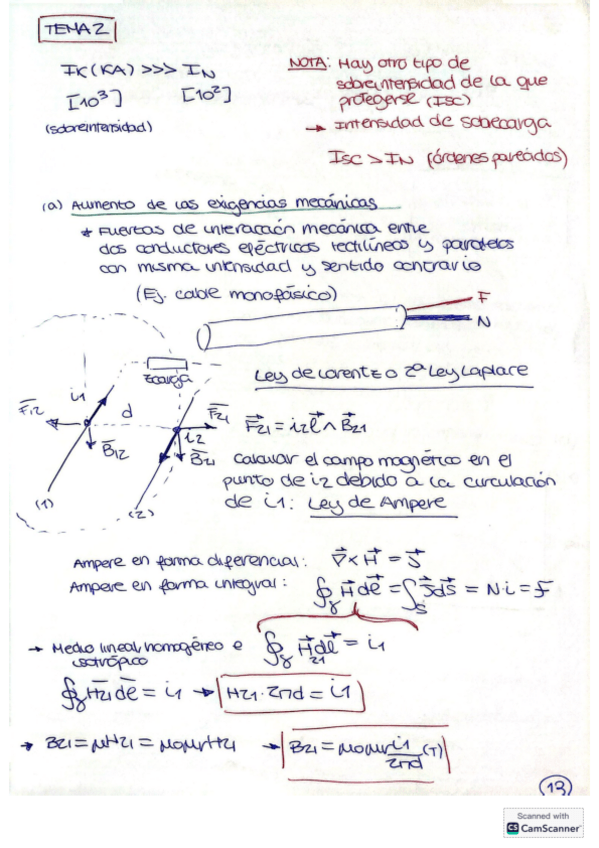 TEMA 2
IK (KA) >>> IN
[10³] [10²]
(sobreintensidad)
NOTA: Hay otro tipo de
sobreintensidad de la que
protegerse (ISC)
→ Intensidad de sobrecarga
ISC > IN (órdenes parecidos)
(a) Aumento de las exigencias mecánicas
* Fuerzas de interacción mecánica entre
dos conductores eléctricos rectilíneos y paralelos
con misma intensidad y sentido contrario
(Ej. cable monofásico)
F
N
Zcarga
i1
F12
d
F21
i2
B12
B21
(1)
(2)
Ley de Lorentz o 2ª Ley Laplace
F21 = i2 l ∧ B21
Calcular el campo magnético en el
punto de i2 debido a la circulación
de i1: Ley de Ampere
Ampere en forma diferencial: ∇ × H = J
Ampere en forma integral: ∮γ H dl = ∫S J dS = N·i = F
→ Medio lineal, homogéneo e
isotrópico
∮γ H21 dl = i1
∮γ H21 dl = i1 → H21 · 2πd = i1
→ B21 = μH21 = μ0μrH21 → B21 = μ0μr i1/2πd (T)
13
Scanned with
CS CamScanner